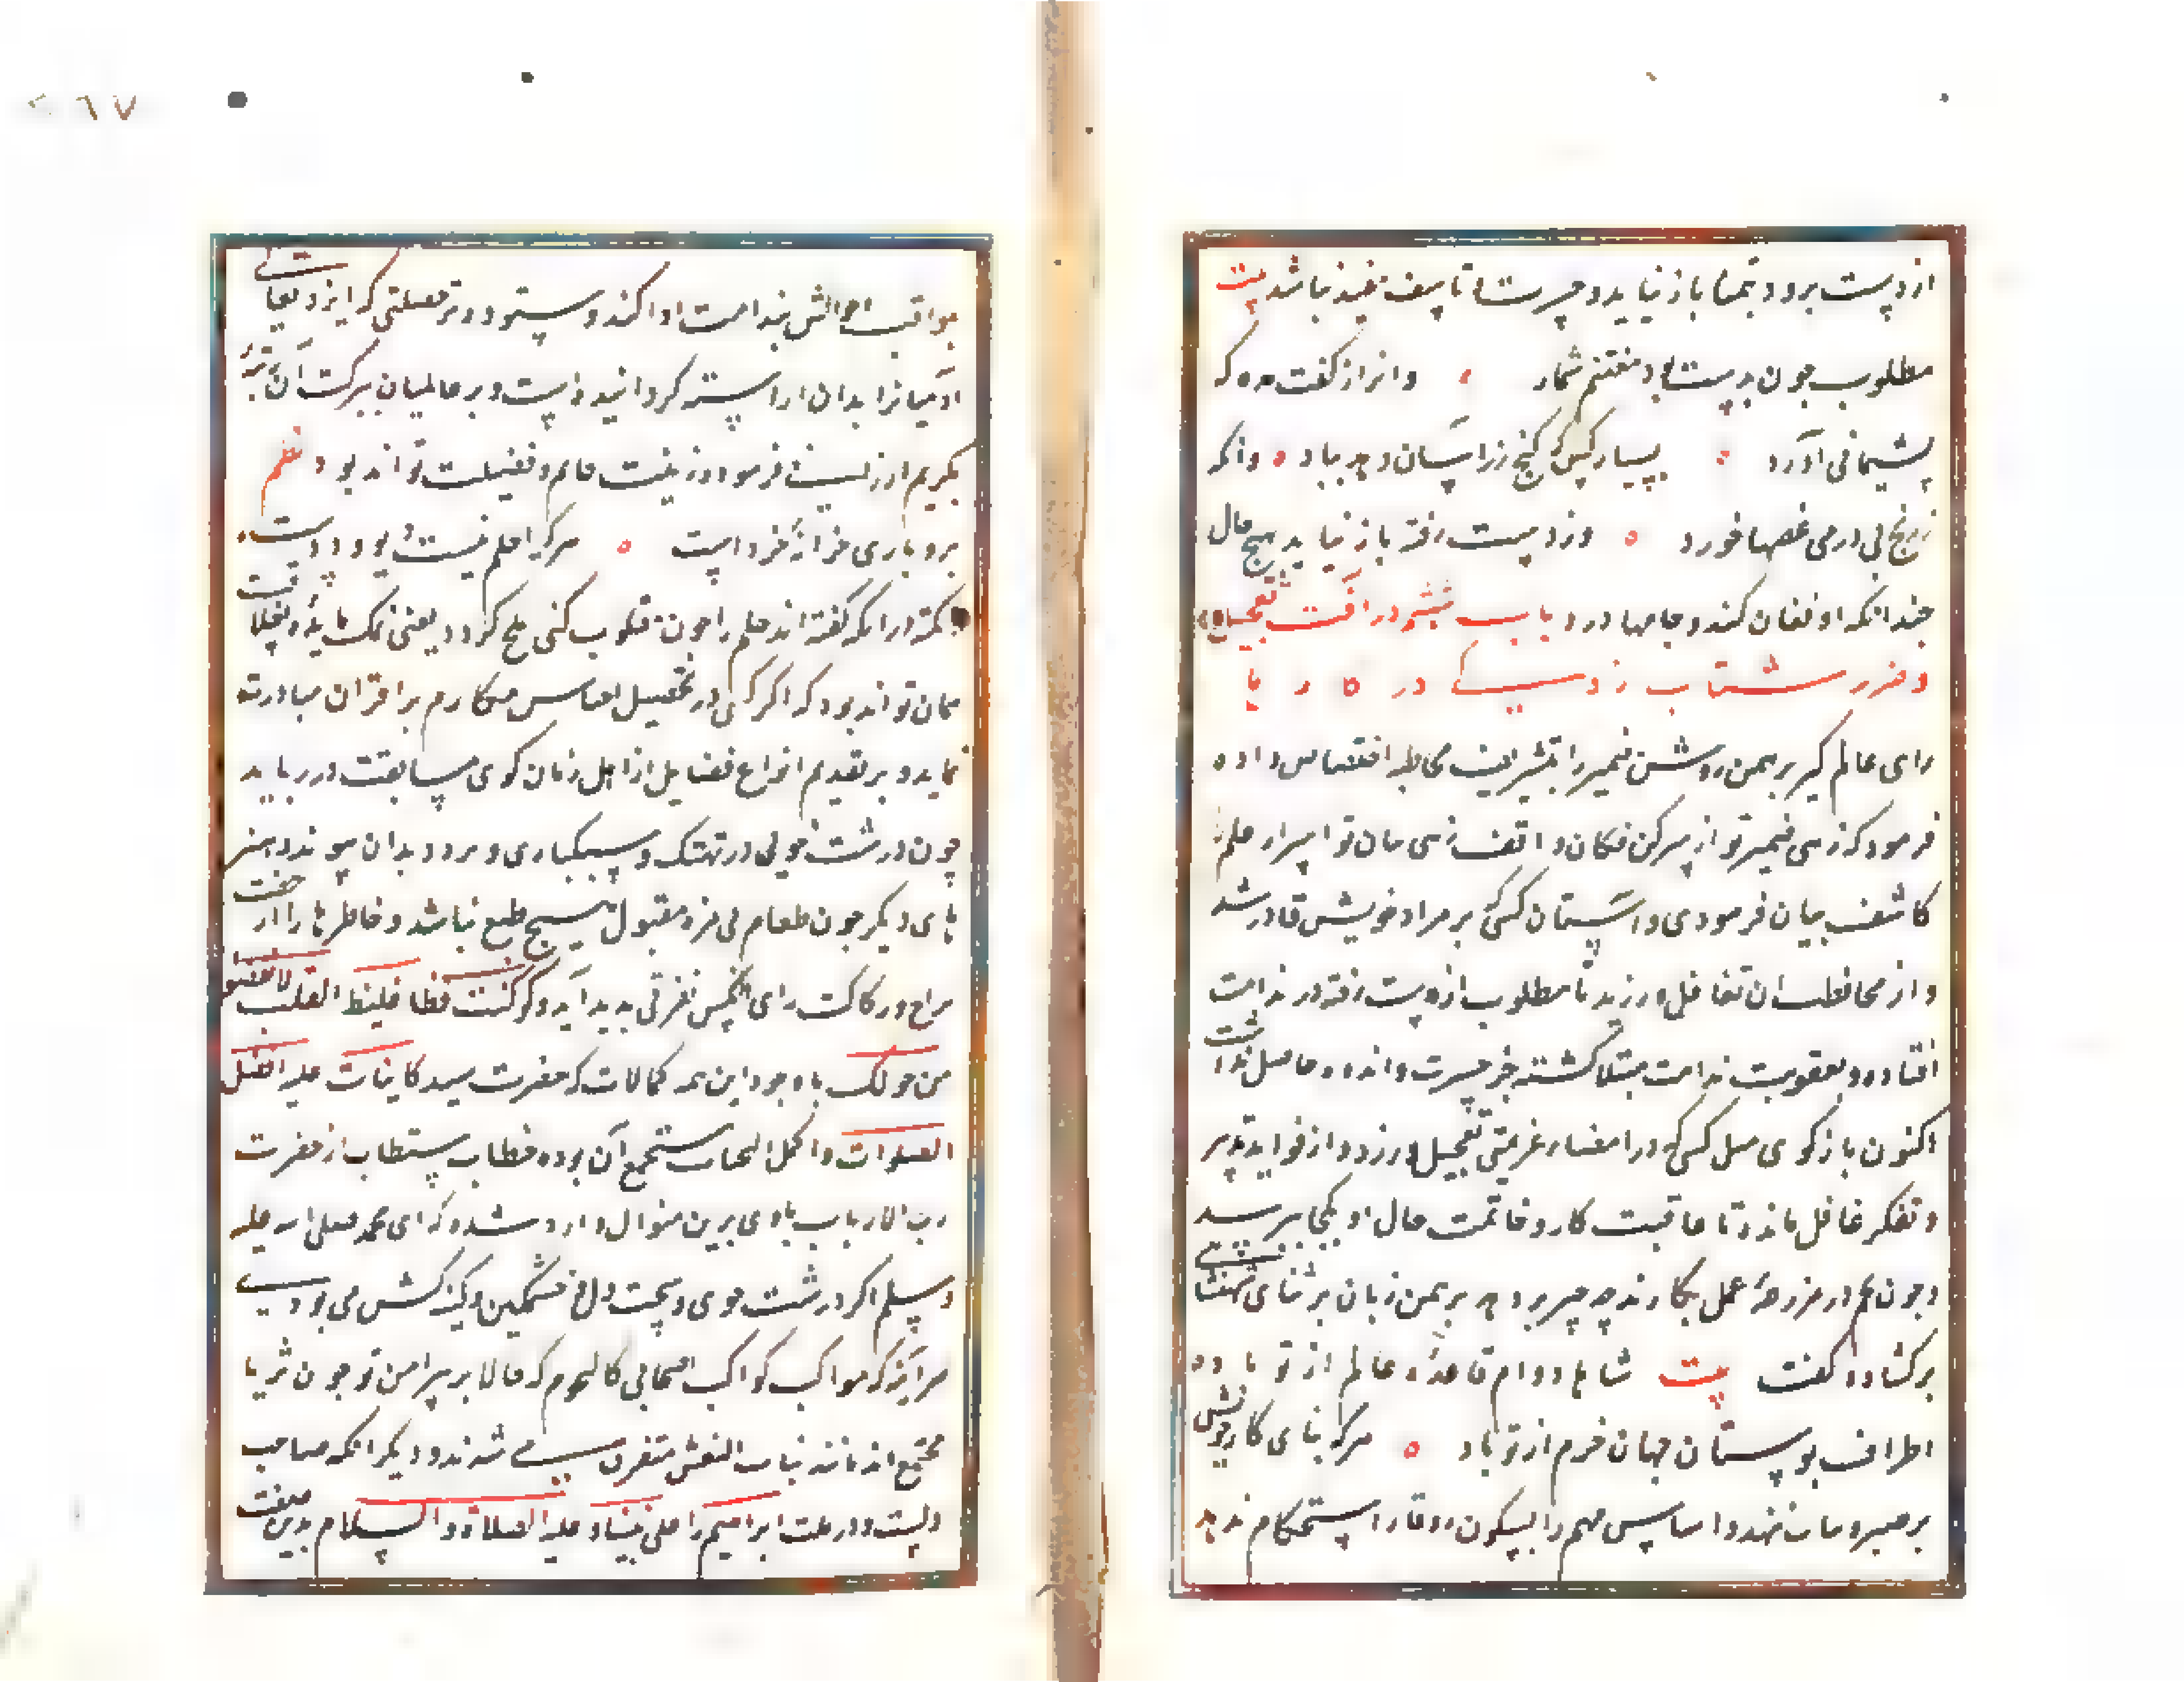 از دست برود و بتمنا باز نیاید و حسرت و تاسف مفید نباشد بیت
مطلوب چون بدست بود مغتنم شمار وانرا ز کف مده که
پشیمانی آورد بسیار کس که گنج زر آسان دهد بباد وانکه
ز رنج بی درمی غصها خورد وز دست رفته باز نیاید بهیچ حال
چندانکه او فغان کند و جامها درد باب ششم در آفت تعجیل
و ضرر شتاب زدگی در کارها
رای عالم گیر برهمن روشن ضمیر را بتشریف مخاطبه اختصاص داده
فرمود که زهی ضمیر تو از سر کن فکان واقف زهی بیان تو اسرار علم را
کاشف بیان فرمودی داستان کسی که بر مراد خویش قادر شد
و از محافظت آن تغافل ورزید تا مطلوب از دست رفته در ندامت
افتاد و بعقوبت ندامت مبتلا گشته جز حسرت و اندوه حاصل نداشت
اکنون بازگوی مثل کسی که در امضاء عزیمتی تعجیل ورزد و از فواید تدبر
و تفکر غافل ماند تا عاقبت کار و خاتمت حال او بکجا میرسد
و چون تخم در مزرعهٔ عمل بکارند چه چیز بر دهد برهمن زبان بر ثنای شهنشاهی
برکشاد و گفت بیت شاها دوام قاعدهٔ عالم از تو باد
اطراف بوستان جهان خرم از تو باد هرکه بنای کار خویش
بر صبر و ثبات ننهد و اساس مهم را بسکون و وقار استحکام ندهد
٢٦٧
عواقب احوالش بندامت ادا کند و ستوده‌تر خصلتی که ایزد تعالی
آدمیانرا بدان آراسته گردانیده است و بر عالمیان ببرکت آن
تکریم ارزانی فرموده زینت حلم و فضیلت تواند بود نظم
بردباری خزانهٔ خرد است هر که را حلم نیست دیو و دد است
نکته در آنکه گفته اند حلم را چون مقلوب کنی ملح گردد یعنی نمک مایدهٔ اخلاقست
همان تواند بود که اگر کسی در تحصیل اساس مکارم بر اقران مبادرت
نماید و بر تقدیم انواع فضایل از اهل زمان گوی مسابقت در رباید
چون درشت خویی و تهتک و سبکباری و بدان پیوندد هنر
های دیگر چون طعام بی مزه مقبول هیچ طبع نباشد و خاطرها را از خفت
مزاج و رکاکت رای آنکس نفرتی پدید آید و لو کنت فظا غلیظ القلب لانفضوا
من حولک با وجود این همه کمالات که حضرت سید کاینات علیه افضل
الصلوات و اکمل التحیات مستجمع آن بوده خطاب مستطاب از حضرت
رب الارباب با وی برین منوال وارد شده که ای محمد صلی الله علیه
و سلم اگر درشت خوی و سخت دل و خشمگین و کینه کش می بودی
هر آینه که مواکب کواکب اصحابی کالنجوم که حالا بر پیرامن تو چون ثریا
مجتمع اند مانند بنات النعش متفرق می شدند و دیگر آنکه صاحب
دولت و در ملت ابراهیم را علی نبینا و علیه الصلاة و السلام بدین صفت